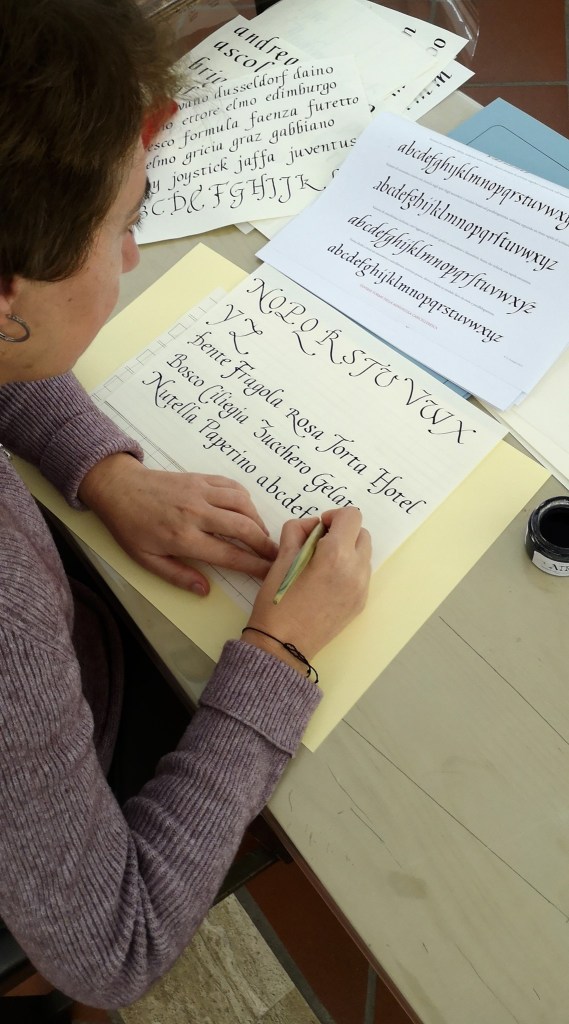 andreo
dusseldorf daino
ettore elmo edimburgo
formula faenza furetto
elmo gricia graz gabbiano
joystick jaffa juventus
B C D E F G H I J K
abcdefghijklmnopqrstuvwxy
abcdefghijklmnopqrstuvwxyz
abcdefghijklmnopqrstuvwxyz
abcdefghijklmnopqrstuvwxyz
N O P Q R S T U V W X
Y Z
Fragola Rosa Torta Hotel
Bosco Ciliegia Zucchero Gelat
Nutella Paperino abcdef